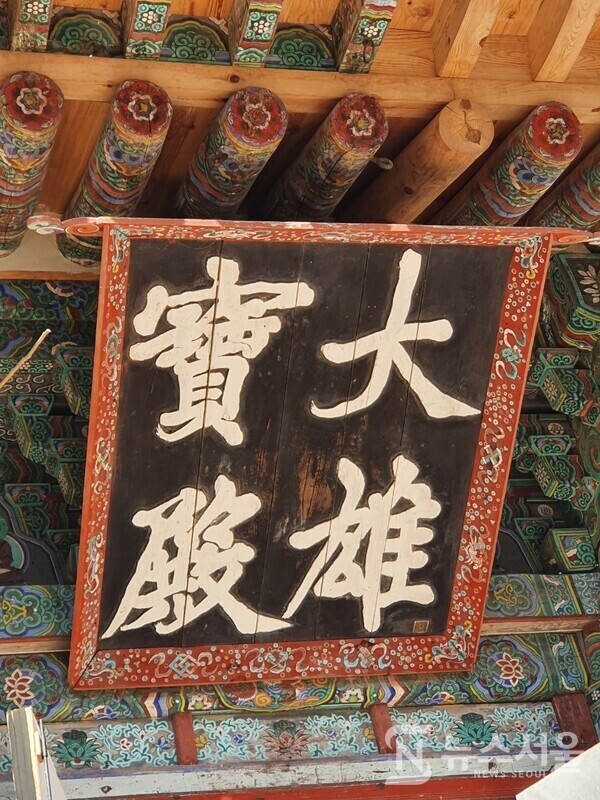 大雄
寶殿
뉴스서울
NEWS SEOUL